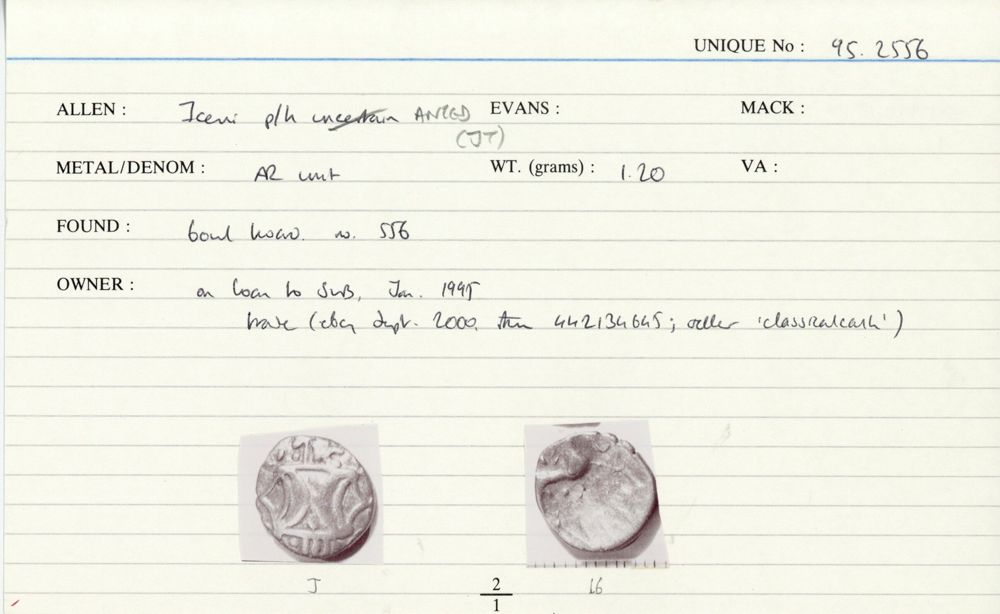 UNIQUE No : 95. 2556
ALLEN : Iceni p/h uncertain ANTED EVANS : MACK :
(JT)
METAL/DENOM : AR unit WT. (grams) : 1.20 VA :
FOUND : bowl hoard. no. 556
OWNER : on loan to SUB, Jan. 1995
trade (ebay Sept. 2000, item 442134645; seller 'classicalcash')
J 2 16
1